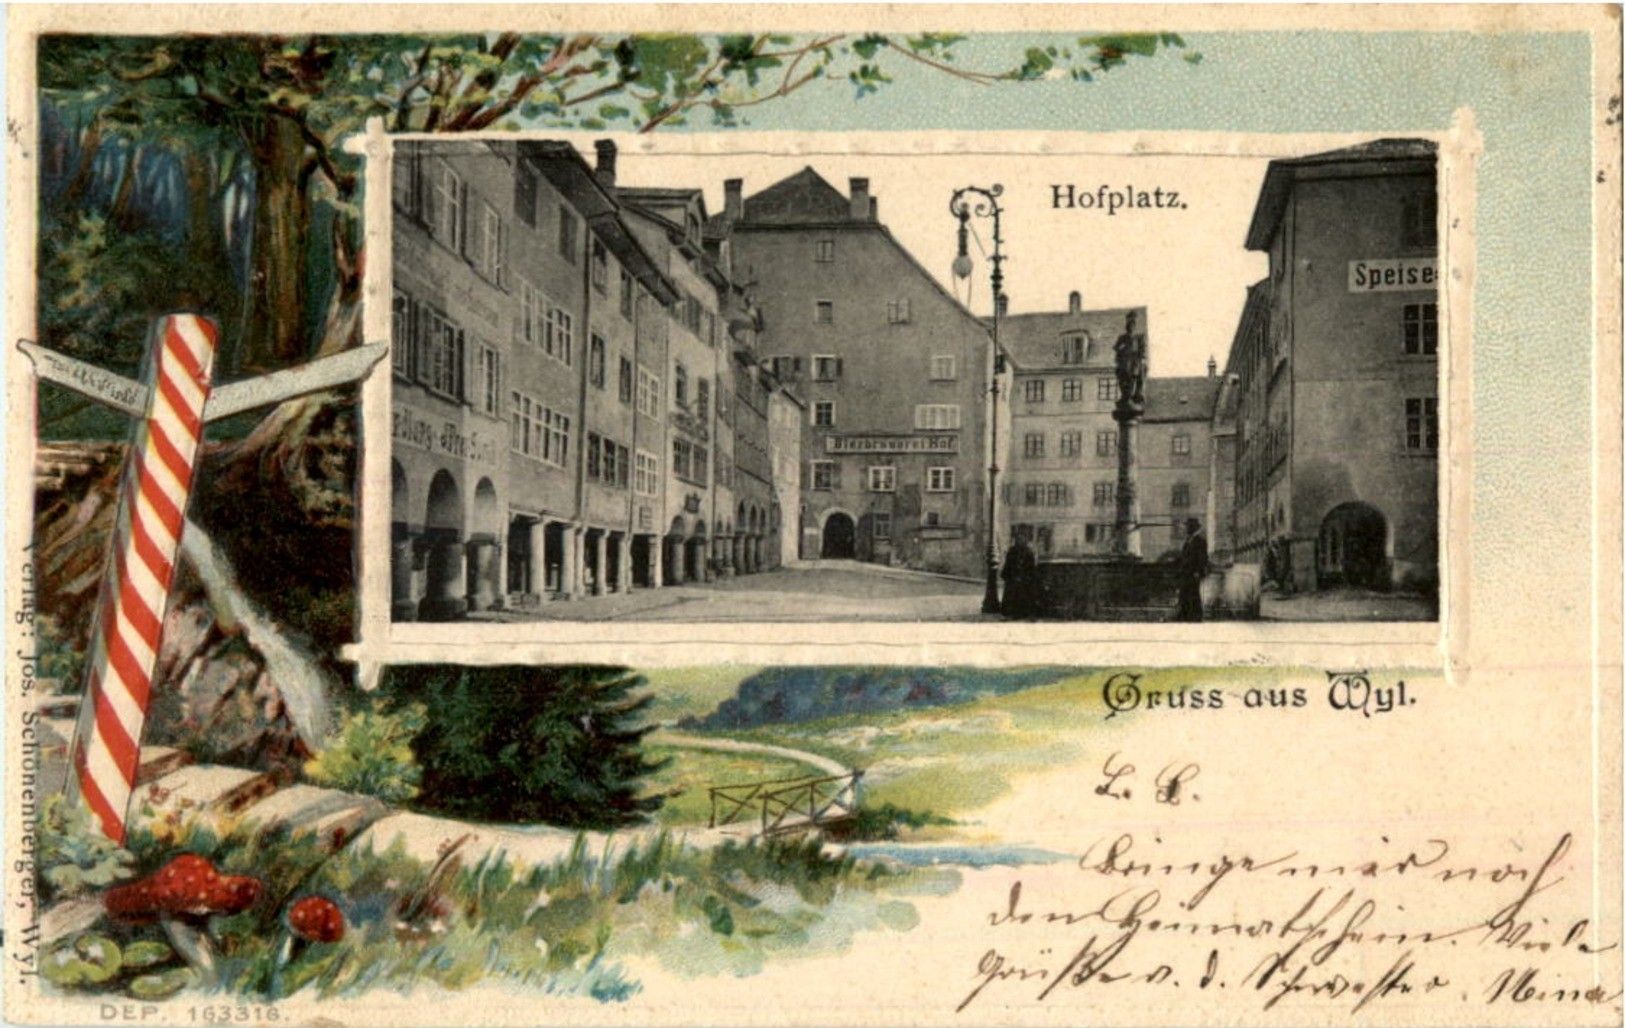 Hofplatz.
Speise
Bierbrauerei Hof
Gruss aus Wyl.
L. B.
Bringe mir noch
den Heimatschein. Viele
Grüße v. d. Schwester. Mina
Verlag: Jos. Schönenberger, Wyl.
DEP. 163316.